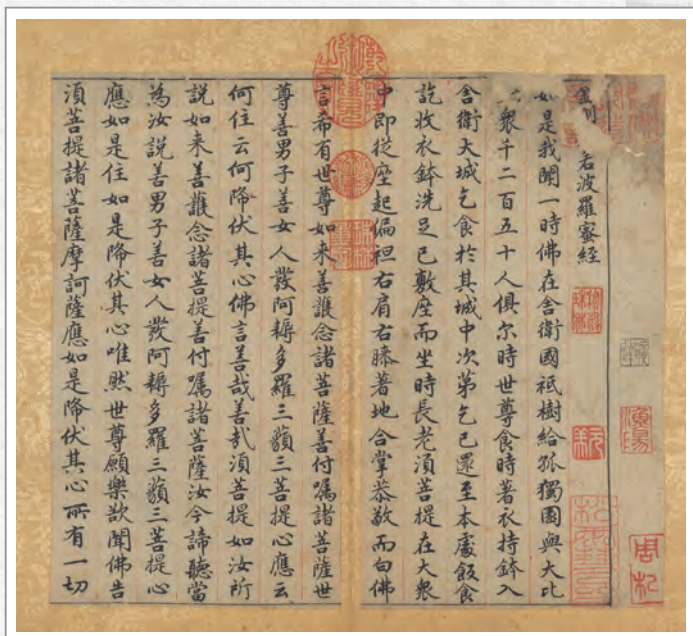 漁陽
金若波羅蜜經
如是我聞一時佛在舍衛國祇樹給孤獨園與大比
衆千二百五十人俱尔時世尊食時著衣持鉢入
舍衛大城乞食於其城中次第乞已還至本處飯食
訖收衣鉢洗足已敷座而坐時長老須菩提在大衆
中即從座起偏袒右肩右膝著地合掌恭敬而白佛
言希有世尊如来善護念諸菩薩善付嘱諸菩薩世
尊善男子善女人發阿耨多羅三藐三菩提心應云
何住云何降伏其心佛言善哉善哉須菩提如汝所
説如来善護念諸菩提善付嘱諸菩薩汝今諦聽當
為汝説善男子善女人發阿耨多羅三藐三菩提心
應如是住如是降伏其心唯然世尊願樂欲聞佛告
須菩提諸菩薩摩訶薩應如是降伏其心所有一切